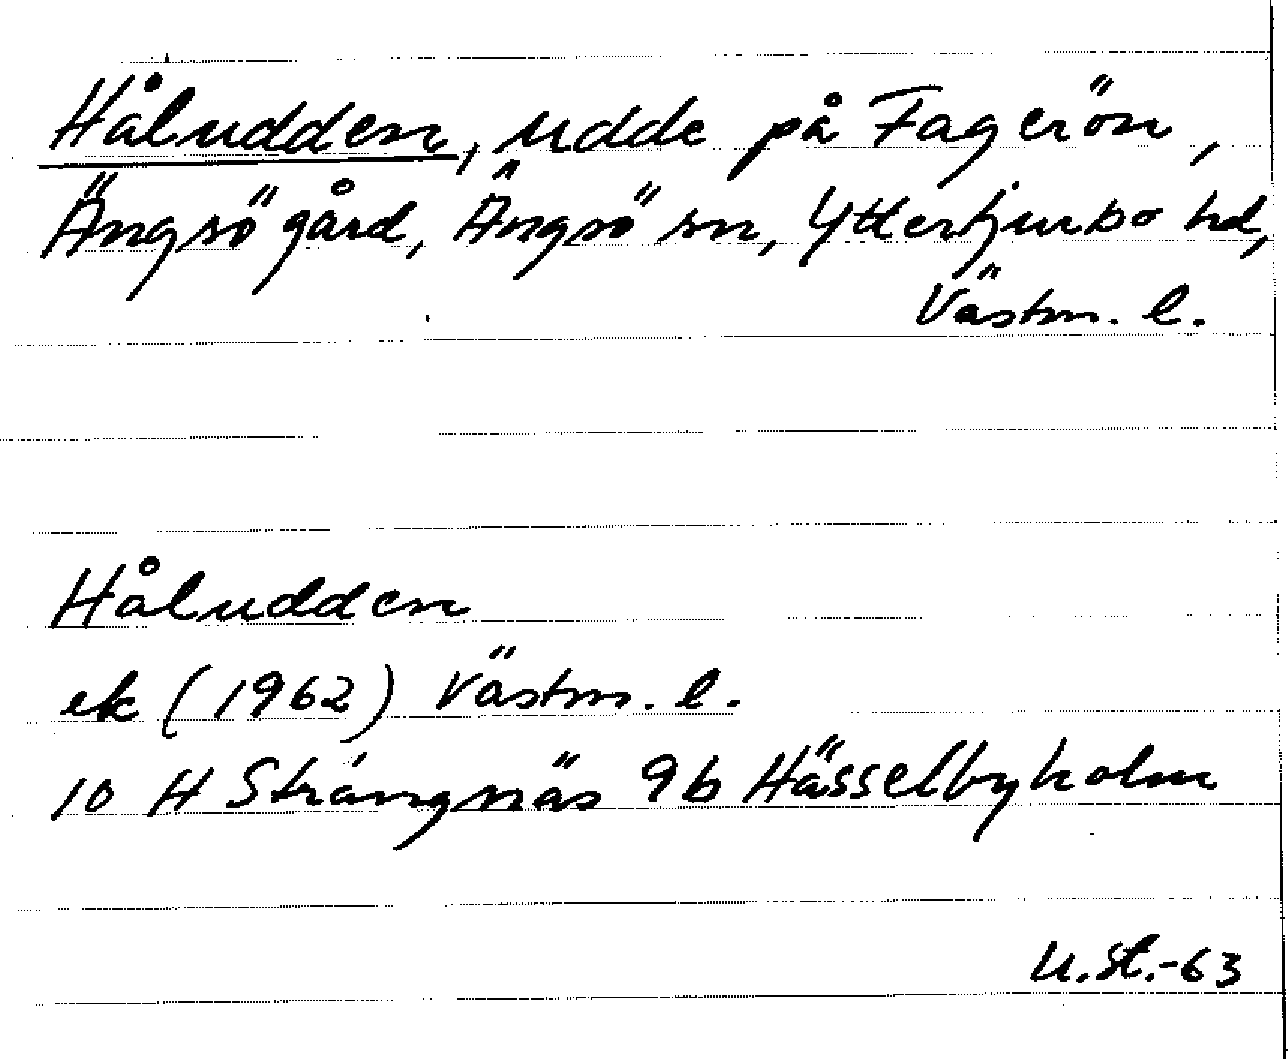 Håludden, udde på Fagerön,
Ängsö gård, Ängsö sn, Yttertjurbo hd,
Västm. l.
Håludden
ek (1962) Västm. l.
10 H Strängnäs 9b Hässelbyholm
U.St.-63